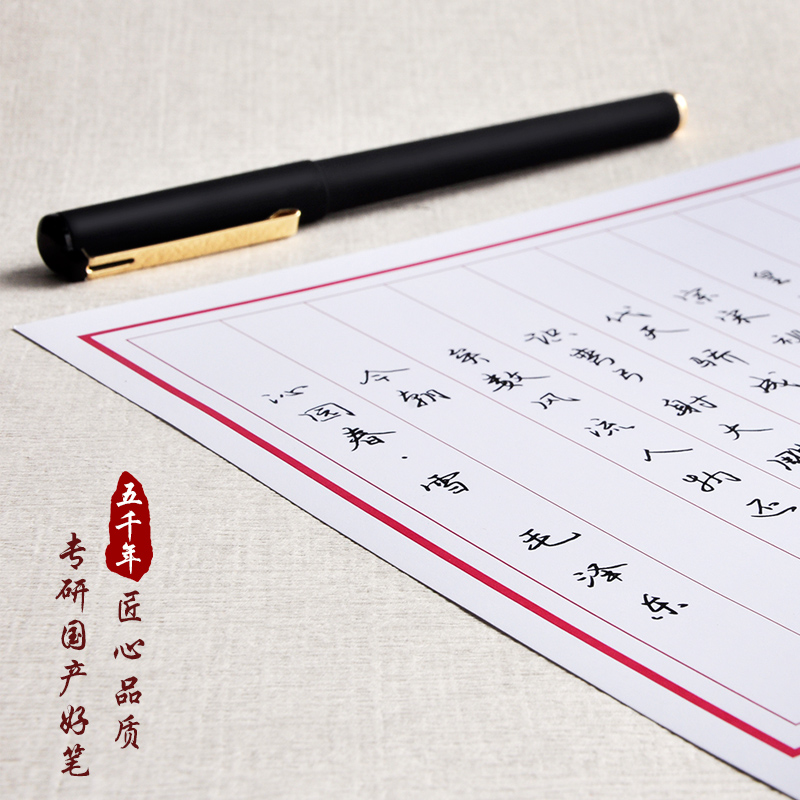 皇
宗宋祖
代天骄成
识弯弓射大雕
矣数风流人物还
今朝
沁园春·雪 毛泽东
五千年
匠心品质
专研国产好笔